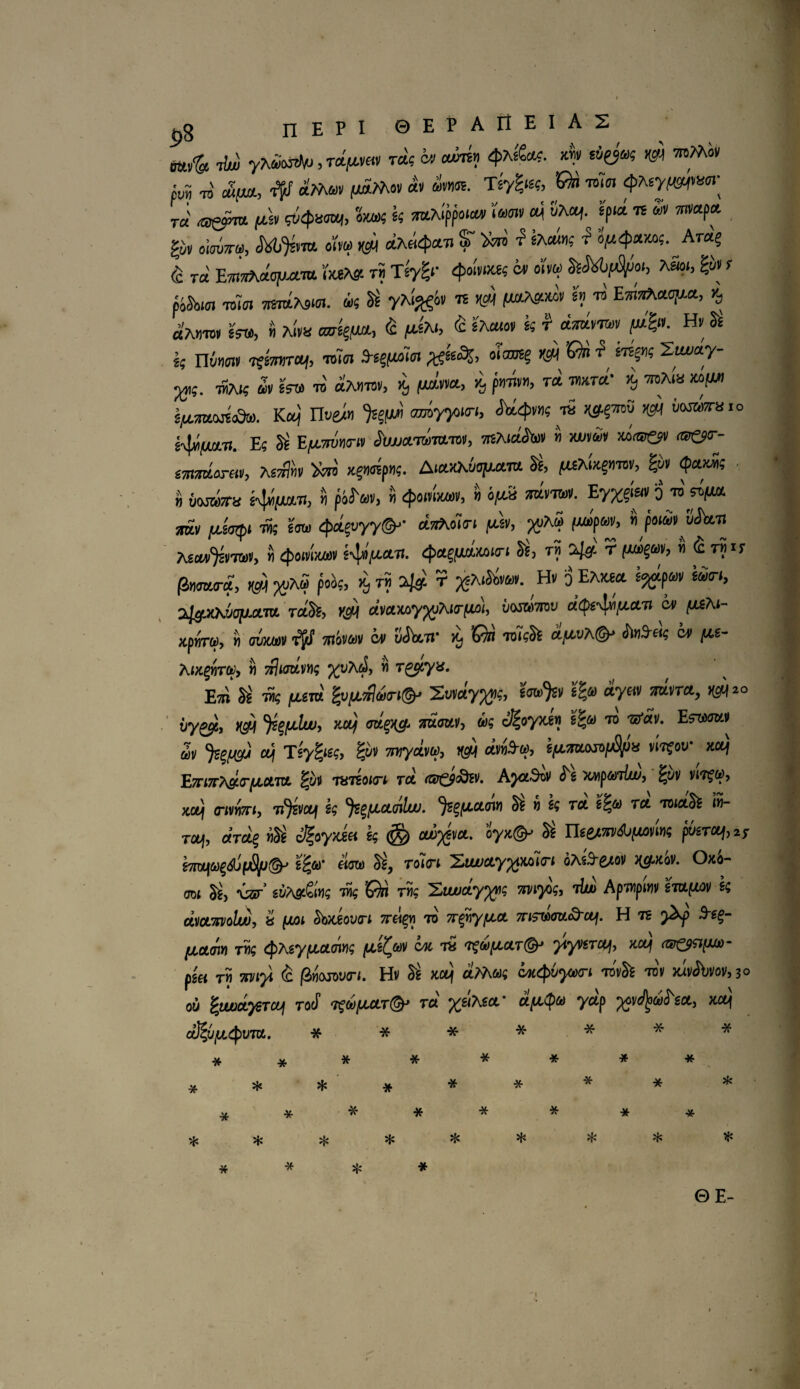 98 ΠΕΡΙ ΘΕΡΑΠΕΙΑΣ
τὴν γλῶσσαν, τάμνειν τὰς ἐν αὐτέῃ φλέβας. κἢν εὐρέως καὶ πολλὸν
ῥυῇ τὸ αἷμα, τῶν ἄλλων μᾶλλον ἂν ὤνησε. Τέγξιες, ἐπὶ τοῖσι φλεγμαίνουσι·
τὰ πρῶτα μὲν στύφουσαι, ὅκως ἐς παλίρροιαν ἴωσιν αἱ ὗλαι. ἔρια τε ὦν πιναρὰ
ξὺν οἰσύπῳ, δευθέντα οἴνῳ καὶ ἀλείφατι τῷ ἀπὸ τῆς ἐλαίης τῆς ὄμφακος. Ἀτὰρ
καὶ τὰ Ἐπιπλάσματα ἴκελα τῇ Τέγξι· φοίνικες ἐν οἴνῳ δεδευμένοι, λεῖοι, ξὺν 5
ῥόδοισι τοῖσι πετάλοισι. ὡς δὲ γλίσχρόν τε καὶ μαλθακὸν ἔῃ τὸ Ἐπίπλασμα, καὶ
ἄλητον ἔστω, ἢ λίνου σπέρμα, καὶ μέλι, καὶ ἔλαιον ἐς τὴν ἁπάντων μίξιν. Ἢν δὲ
ἐς Πύησιν τρέπηται, τοῖσι θερμοῖσι χρέεσθαι, οἵοισπερ καὶ ἐπὶ τῆς ἑτέρης Συνάγ-
χης. τῆλις ὦν ἔστω τὸ ἄλητον, καὶ μάννα, καὶ ῥητίνη, τὰ τηκτά· καὶ πολίου κόμη
ἐμπασσέσθω. Καὶ Πυρίη θερμὴ σπόγγοισι, δάφνης τοῦ καρποῦ καὶ ὑσσώπου 10
ἑψήματι. Ἐς δὲ Ἐμπύησιν δυνατώτατον, πελιάδων ἢ κυνῶν κόπρον προσ-
επιπάσσειν, λεπτὴν ἀπὸ κρησέρης. Διακλύσματα δὲ, μελίκρητον, ξὺν φακῆς
ἢ ὑσσώπου ἑψήματι, ἢ ῥόδων, ἢ φοινίκων, ἢ ὁμοῦ πάντων. Ἐγχρίειν δὲ τὸ στόμα
πᾶν μέσφι τῆς ἔσω φάρυγγος· ἁπλοῖσι μὲν, χυλῷ μώρων, ἢ ῥοιῶν ὕδατι
λεανθέντων, ἢ φοινίκων ἑψήματι. φαρμάκοισι δὲ, τῇ διὰ τῶν μώρων, ἢ καὶ τῇ 15
βησασᾷ, καὶ χυλῷ ῥοὸς, καὶ τῇ διὰ τῶν χελιδόνων. Ἢν δὲ Ἕλκεα ἐσχάρων ἔωσι,
διακλύσματα τάδε, καὶ ἀνακογχυλισμοὶ, ὑσσώπου ἀφεψήματι ἐν μελι-
κρήτῳ, ἢ σύκων τῶν πιόνων ἐν ὕδατι· καὶ ἐπὶ τοῖςδε ἄμυλος διηθεὶς ἐν με-
λικρήτῳ, ἢ πτισάνης χυλῷ, ἢ τράγου.
Ἐπὶ δὲ τῆς μετὰ ξυμπτώσιος Συνάγχης, ἔσωθεν ἔξω ἄγειν πάντα, καὶ 20
ὑγρὰ, καὶ θερμὴν, καὶ σάρκα πᾶσαν, ὡς ἐξογκέῃ ἔξω τὸ πᾶν. Ἔστωσαν
ὦν θερμαὶ αἱ Τέγξιες, ξὺν πηγάνῳ, καὶ ἀνήθῳ, ἐμπασσομένου νίτρου· καὶ
Ἐπιπλάσματα ξὺν τουτέοισι τὰ πρόσθεν. Ἀγαθὸν δὲ κηρωτὴν, ξὺν νίτρῳ,
καὶ σινήπι, τιθέναι ἐς θερμασίην. θερμασίη δὲ ἢ ἐς τὰ ἔξω τὰ τοιάδε ἰῆ-
ται, ἀτὰρ ἠδὲ ἐξογκέει ἐς τὸν αὐχένα. ὄγκος δὲ Περιπνευμονίης ῥύεται, 25
ἐπαιωρεύμενος ἔξω· εἴσω δὲ, τοῖσι Συναγχικοῖσι ὀλέθριον κακόν. Ὁκό-
σοι δὲ, ὑπ' εὐλαβίης τῆς ἐπὶ τῆς Συνάγχης πνιγὸς, τὴν Ἀρτηρίην ἔταμον ἐς
ἀναπνοὴν, οὔ μοι δοκέουσι πείρῃ τὸ πρῆγμα πιστώσασθαι. Ἥ τε γὰρ θερ-
μασίη τῆς φλεγμασίης μέζων ἐκ τοῦ τρώματος γίγνεται, καὶ προστιμω-
ρέει τῇ πνιγὶ καὶ βήσσουσι. Ἢν δὲ καὶ ἄλλως ἐκφύγωσι τόνδε τὸν κίνδυνον, 30
οὐ ξυνάγεται τοῦ τρώματος τὰ χείλεα· ἄμφω γὰρ χονδρώδεα, καὶ
οὐ ξύμφυτα. * * * * * * *
* * * * * * * *
* * * * * * * * *
* * * * * * * *
* * * * * * * * *
* * * *
ΘΕ-